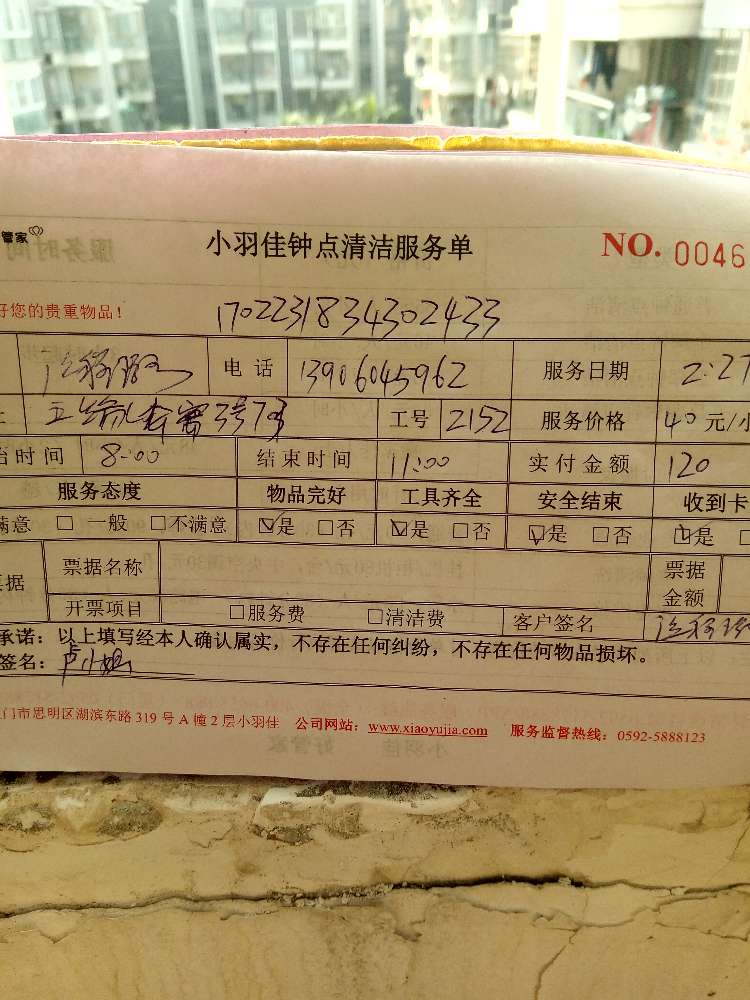 管家 小羽佳钟点清洁服务单 NO. 0046
好您的贵重物品! 1702231834302433
电话 13906045962 服务日期 2.27
工号 2152 服务价格 40元/小
时间 8:00 结束时间 11:00 实付金额 120
服务态度 物品完好 工具齐全 安全结束 收到卡
满意 □一般 □不满意 ☑是 □否 ☑是 □否 ☑是 □否 ☑是
据 票据名称 票据金额
开票项目 □服务费 □清洁费 客户签名
承诺：以上填写经本人确认属实，不存在任何纠纷，不存在任何物品损坏。
签名：
门市思明区湖滨东路319号A幢2层小羽佳 公司网站：www.xiaoyujia.com 服务监督热线：0592-5888123